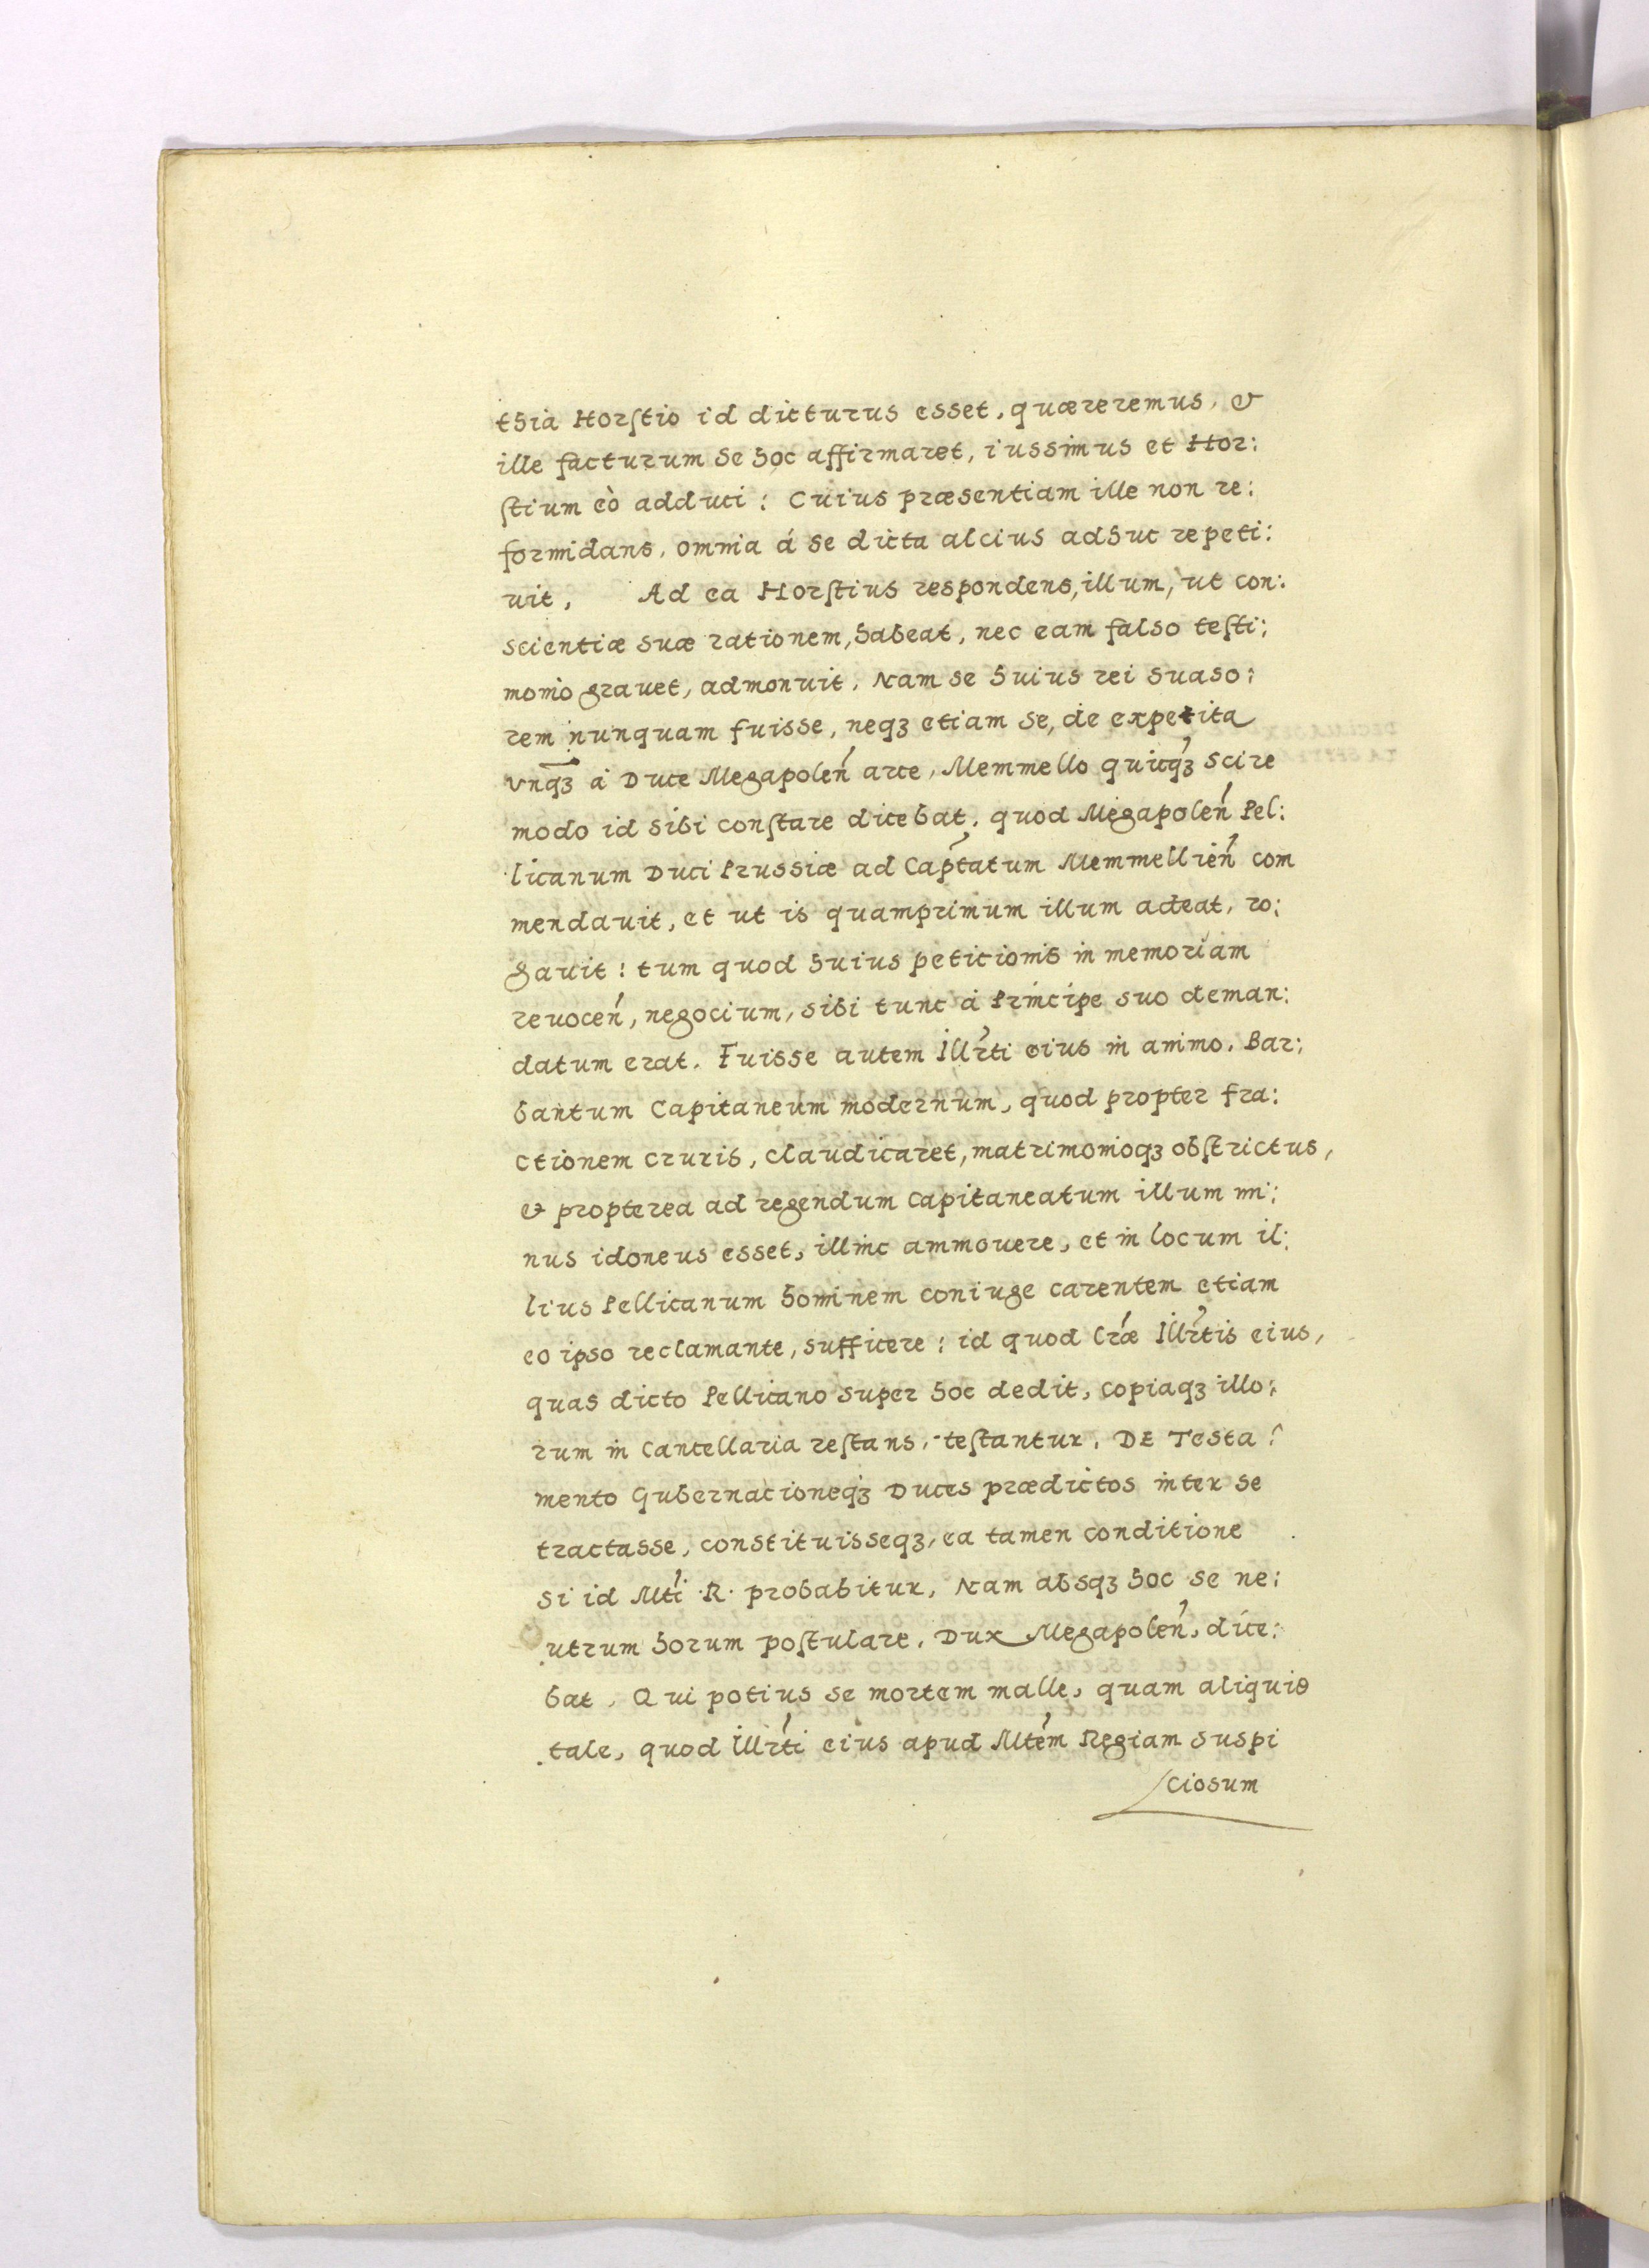 thia Horstio id dicturus esset, quæreremus, &
ille facturum se hoc affirmaret, iussimus et Hor:
stium eò adduci: Cuius præsentiam ille non re:
formidans, omnia á se dicta alcius adhuc repeti:
uit, Ad ea Horstius respondens, illum, ut con:
scientiæ suæ rationem, habeat, nec eam falso testi:
monio grauet, admonuit. Nam se huius rei suaso:
rem nunquam fuisse, neqȝ etiam se, de expetita
vnqȝ á Duce Megapoleń arce, Memmello quicqȝ scire
modo id sibi constare dicebat. quod Megapoleń Pel:
licanum Duci Prussiæ ad Captatum Memmellień com
mendauit, et ut is quamprimum illum adeat, ro:
gauit: tum quod huius peticionis in memoriam
reuoceń, negocium, sibi tunc á Principe suo deman:
datum erat. Fuisse autem Illrti eius in animo. Bar:
bantum Capitaneum modernum, quod propter fra:
ctionem cruris, claudicaret, matrimonioqȝ obstrictus,
& propterea ad regendum capitaneatum illum mi:
nus idoneus esset, illinc ammouere, et in locum il:
lius Pellicanum hominem coniuge carentem etiam
eo ipso reclamante, sufficere: id quod lræ Illrtis eius,
quas dicto Pellicano super hoc dedit, copiaqȝ illo:
rum in Cancellaria restans, testantur. DE Testa:
mento Gubernacioneqȝ Duces prædictos inter se
tractasse, constituisseqȝ, ea tamen conditione
si id Mti .R. probabitur, Nam absqȝ hoc se ne:
utrum horum postulare. Dux Megapoleń, dice:
bat. Qui potius se mortem malle, quam aliquid
tale, quod Illrti eius apud Mtem Regiam suspi
ciosum